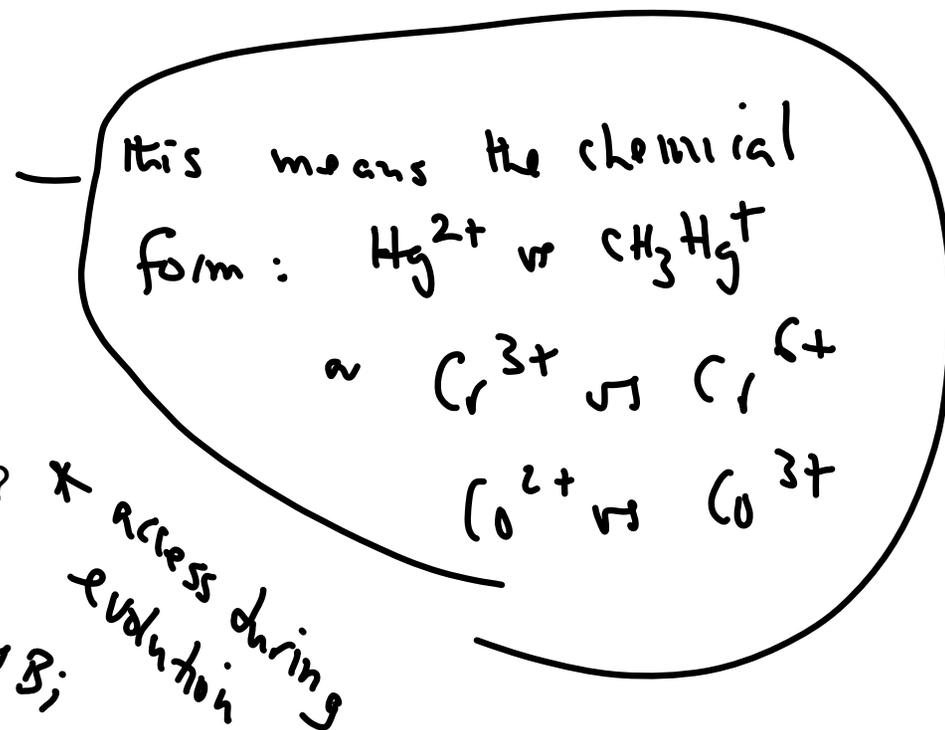 this means the chemical
form: Hg²⁺ vs CH₃Hg⁺
Cr³⁺ vs Cr⁶⁺
Co²⁺ vs Co³⁺
* access during
evolution
Bi